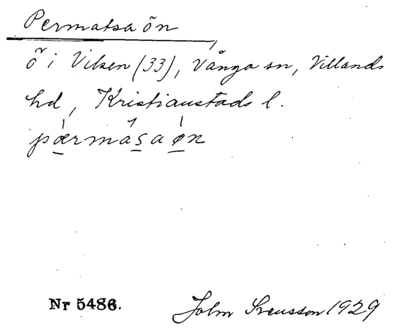 Permatsa ön
ö i Vilsen (33), Vånga sn, Villands
hd, Kristianstads l.
pærmásaøn
Nr 5486.
John Svensson 1929